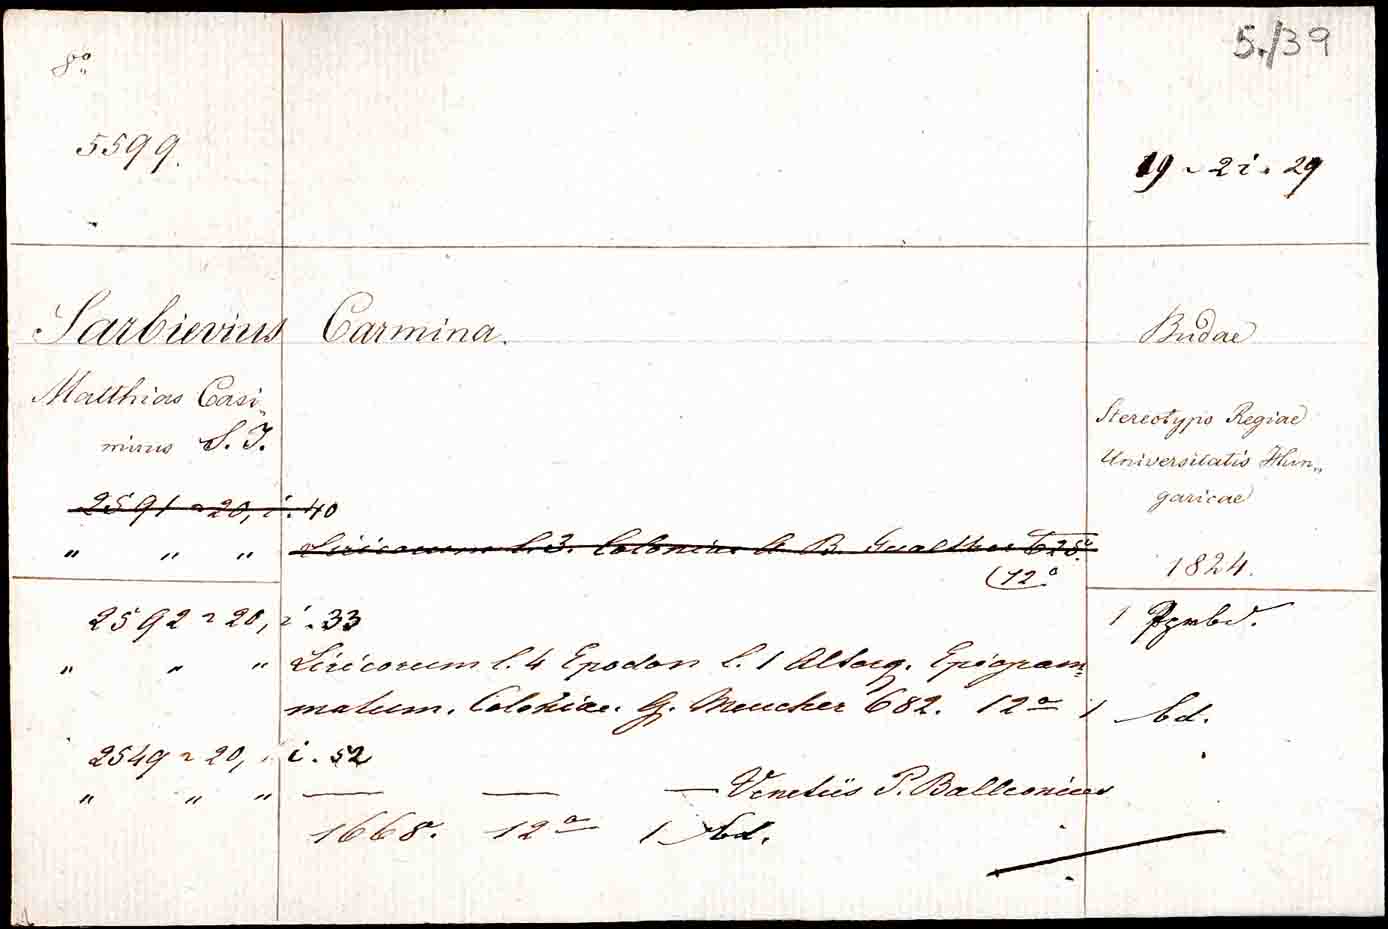 5./39
8o
5599.
19 ~ 2 i. 29
Sarbievius Carmina. Budae
Matthias Casi„
mirus S. J.
Stereotypo Regiae
Universitatis Hun„
garicae
1824.
2591 ~ 20, i. 40
„ „ „ Liricorum l. 3. Coloniae B. Gualther 625.
(12o
2592 ~ 20, i. 33
1 Pprbd.
„ „ „ Liricorum l. 4 Epodon l. 1 Epigram„
matum. Coloniae. G. Meucher 682. 12o 1 bd.
2549 ~ 20, i. 52
„ „ „ — — — Venetiis P. Balleonius
1668. 12o 1 bd.